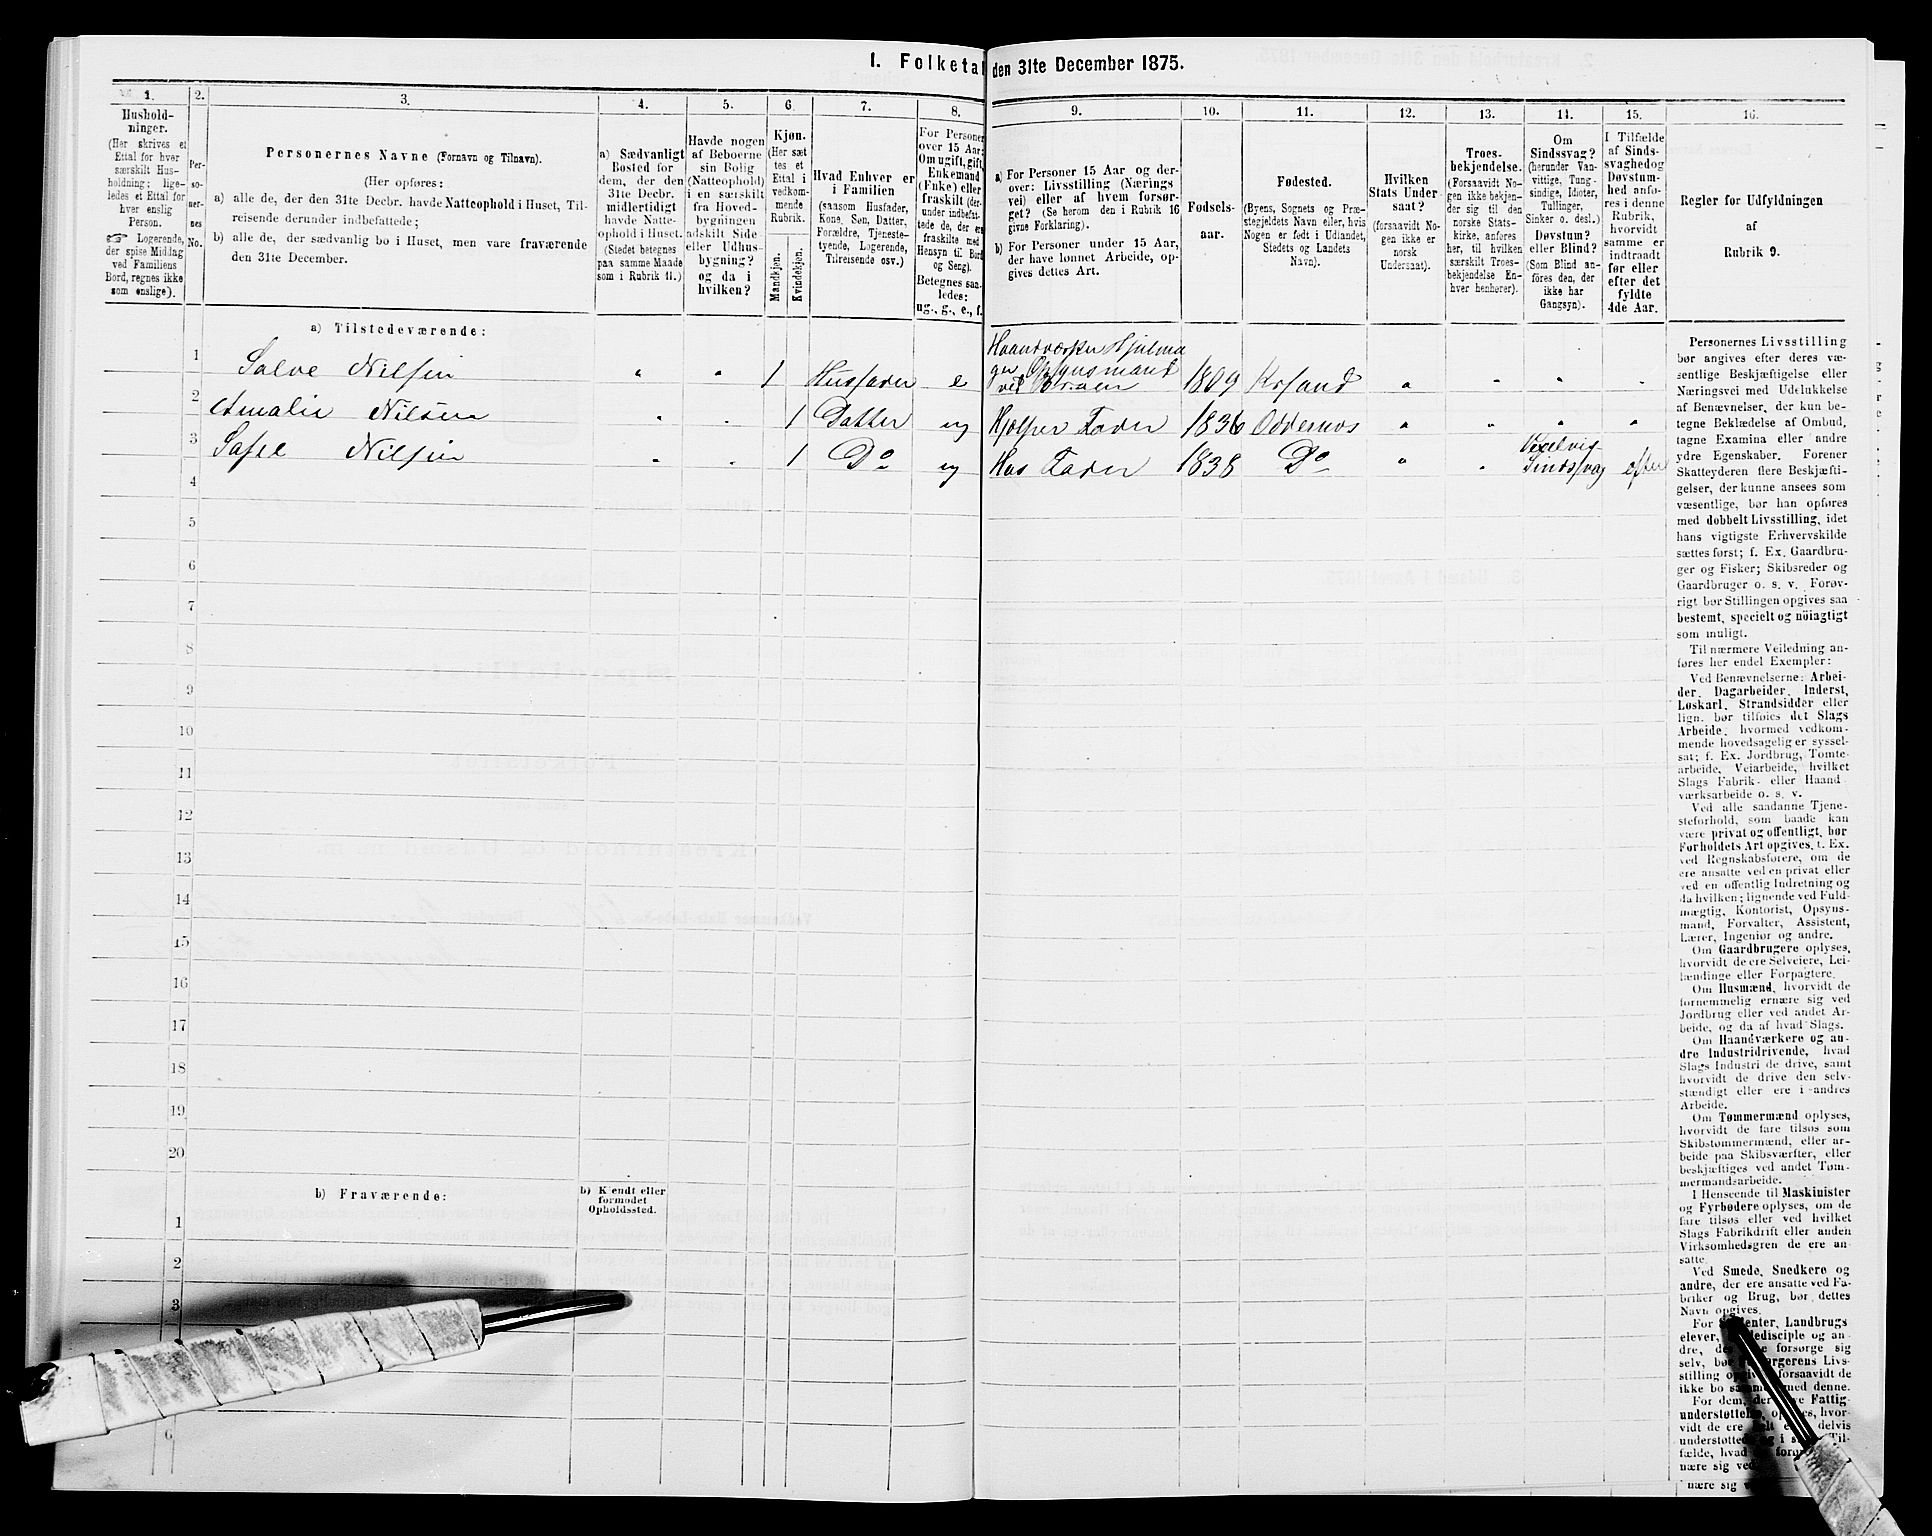 1. Folketal den 31te December 1875.
1.
Hushold-
ninger.
(Her skrives et
Ettal for hver
særskilt Hus-
holdning; lige-
ledes et Ettal for
hver enslig
Person.
☞ Logerende,
der spise Middag
ved Familiens
Bord, regnes ikke
som enslige).
2.
Per-
so-
ner-
nes
No.
3.
Personernes Navne (Fornavn og Tilnavn).
(Her opføres:
a) alle de, der den 31te Decbr. havde Natteophold i Huset, Til-
reisende derunder indbefattede;
b) alle de, der sædvanlig bo i Huset, men vare fraværende
den 31te December.
4.
a) Sædvanligt
Bosted for
dem, der den
31te Decbr.
midlertidigt
havde Natte-
ophold i Huset.
(Stedet betegnes
paa samme Maade
som i Rubrik 11.)
5.
Havde nogen
af Beboerne
sin Bolig
(Natteophold)
i en særskilt
fra Hoved-
bygningen
adskilt Side-
eller Udhus-
bygning?
og da i
hvilken?
6.
Kjøn.
(Her sæt-
tes et
Ettal i
vedkom-
mende
Rubrik.
Mandkjøn.
Kvindekjøn.
7.
Hvad Enhver er
i Familien
(saasom Husfader,
Kone, Søn, Datter,
Forældre, Tjeneste-
tyende, Logerende,
Tilreisende osv.)
8.
For Personer
over 15 Aar:
Om ugift, gift,
Enkemand
(Enke) eller
fraskilt (der-
under indbefat-
tede de, der ere
fraskilte med
Hensyn til Bord
og Seng).
Betegnes saa-
ledes:
ug., g., e., f.
9.
a) For Personer 15 Aar og der-
over: Livsstilling (Nærings-
vei) eller af hvem forsør-
get? (Se herom den i Rubrik 16
givne Forklaring).
b) For Personer under 15 Aar,
der have lønnet Arbeide, op-
gives dettes Art.
10.
Fødsels-
aar.
11.
Fødested.
(Byens, Sognets og Præ-
stegjeldets Navn eller, hvis
Nogen er født i Udlandet,
Stedets og Landets
Navn).
12.
Hvilken
Stats Under-
saat?
(forsaavidt No-
gen ikke er
norsk
Undersaat).
13.
Troes-
bekjendelse.
(Forsaavidt No-
gen ikke bekjen-
der sig til den
norske Stats-
kirke, anføres
her, til hvilken
særskilt Troes-
bekjendelse En-
hver henhører).
14.
Om
Sindssvag?
(herunder Van-
vittige, Tung-
sindige, Idioter,
Tullinger,
Sinker o. desl.)
Døvstum?
eller Blind?
(Som Blind an-
føres den, der
ikke har
Gangsyn).
15.
I Tilfælde
af Sinds-
svaghed og
Døvstum-
hed anfø-
res i denne
Rubrik,
hvorvidt
samme er
indtraadt
før eller
efter det
fyldte
4de Aar.
16.
Regler for Udfyldningen
af
Rubrik 9.
a) Tilstedeværende:
1 Salve Nilsen " " 1 Husfader e Haandværker Hjulma
ger Opsynsmand
ved Broen 1809 Krsand " " " "
2 Amalie Nilsen " " 1 Datter ug Hjælper Fader 1836 Oddernes " " " "
3 Sofie Nilsen " " 1 Do ug Hos Fader 1838 Do " " Sindssvag efter
4
5
6
7
8
9
10
11
12
13
14
15
16
17
18
19
20
b) Fraværende:
b) Kjendt eller
formodet
Opholdssted.
1
2
3
6
Personernes Livsstilling
bør angives efter deres væ-
sentlige Beskjæftigelse eller
Næringsvei med Udelukkelse
af Benævnelser, der kun be-
tegne Beklædelse af Ombud,
tagne Examina eller andre
ydre Egenskaber. Forener
Skatteyderen flere Beskjæfti-
gelser, der kunne ansees som
væsentlige, bør han opføres
med dobbelt Livsstilling, idet
hans vigtigste Erhvervskilde
sættes først; f. Ex. Gaardbru-
ger og Fisker; Skibsreder og
Gaardbruger o. s. v. Forøv-
rigt bør Stillingen opgives saa
bestemt, specielt og nöiagtigt
som muligt.
Til nærmere Veiledning an-
føres her endel Exempler:
Ved Benævnelserne: Arbei-
der, Dagarbeider, Inderst,
Løskarl, Strandsidder eller
lign. bør tilføies det Slags
Arbeide, hvormed vedkom-
mende hovedsagelig er syssel-
sat; f. Ex. Jordbrug, Tomte-
arbeide, Veiarbeide, hvilket
Slags Fabrik- eller Haand-
værksarbeide o. s. v.
Ved alle saadanne Tjene-
steforhold, som baade kan
være privat og offentligt, bør
Forholdets Art opgives, f. Ex.
ved Regnskabsførere, om de
ere ansatte ved en privat eller
ved en offentlig Indretning og
da hvilken; lignende ved Fuld-
mægtig, Kontorist, Opsyns-
mand, Forvalter, Assistent,
Lærer, Ingeniør og andre.
Om Gaardbrugere oplyses,
hvorvidt de ere Selveiere, Lei-
lændinge eller Forpagtere.
Om Husmænd, hvorvidt de
fornemmelig ernære sig ved
Jordbrug eller ved andet Ar-
beide, og da af hvad Slags.
Om Haandværkere og an-
dre Industridrivende, hvad
Slags Industri de drive, samt
hvorvidt de drive den selv-
stændigt eller ere i andres
Arbeide.
Om Tømmermænd oplyses,
hvorvidt de fare tilsøs som
Skibstømmermænd, eller ar-
beide paa Skibsværfter, eller
beskjæftiges ved andet Tøm-
mermandsarbeide.
I Henseende til Maskinister
og Fyrbødere oplyses, om de
fare tilsøs eller ved hvilket
Slags Fabrikdrift eller anden
Virksomhedsgren de ere an-
satte.
Ved Smede, Snedkere og
andre, der ere ansatte ved Fa-
briker og Brug, bør dettes
Navn opgives.
For Studenter, Landbrugs-
elever, Skoledisciple og an-
dre, der ikke forsørge sig
selv, bør Forsørgerens Livs-
stilling opgives, forsaavidt de
ikke bo sammen med denne.
For dem, der have Fattig-
understøttelse, oplyses, hvor-
vidt de ere helt eller delvis
understøttede og i sidste Til-
fælde, hvad de forøvrigt er-
nære sig ved.
nære sig v